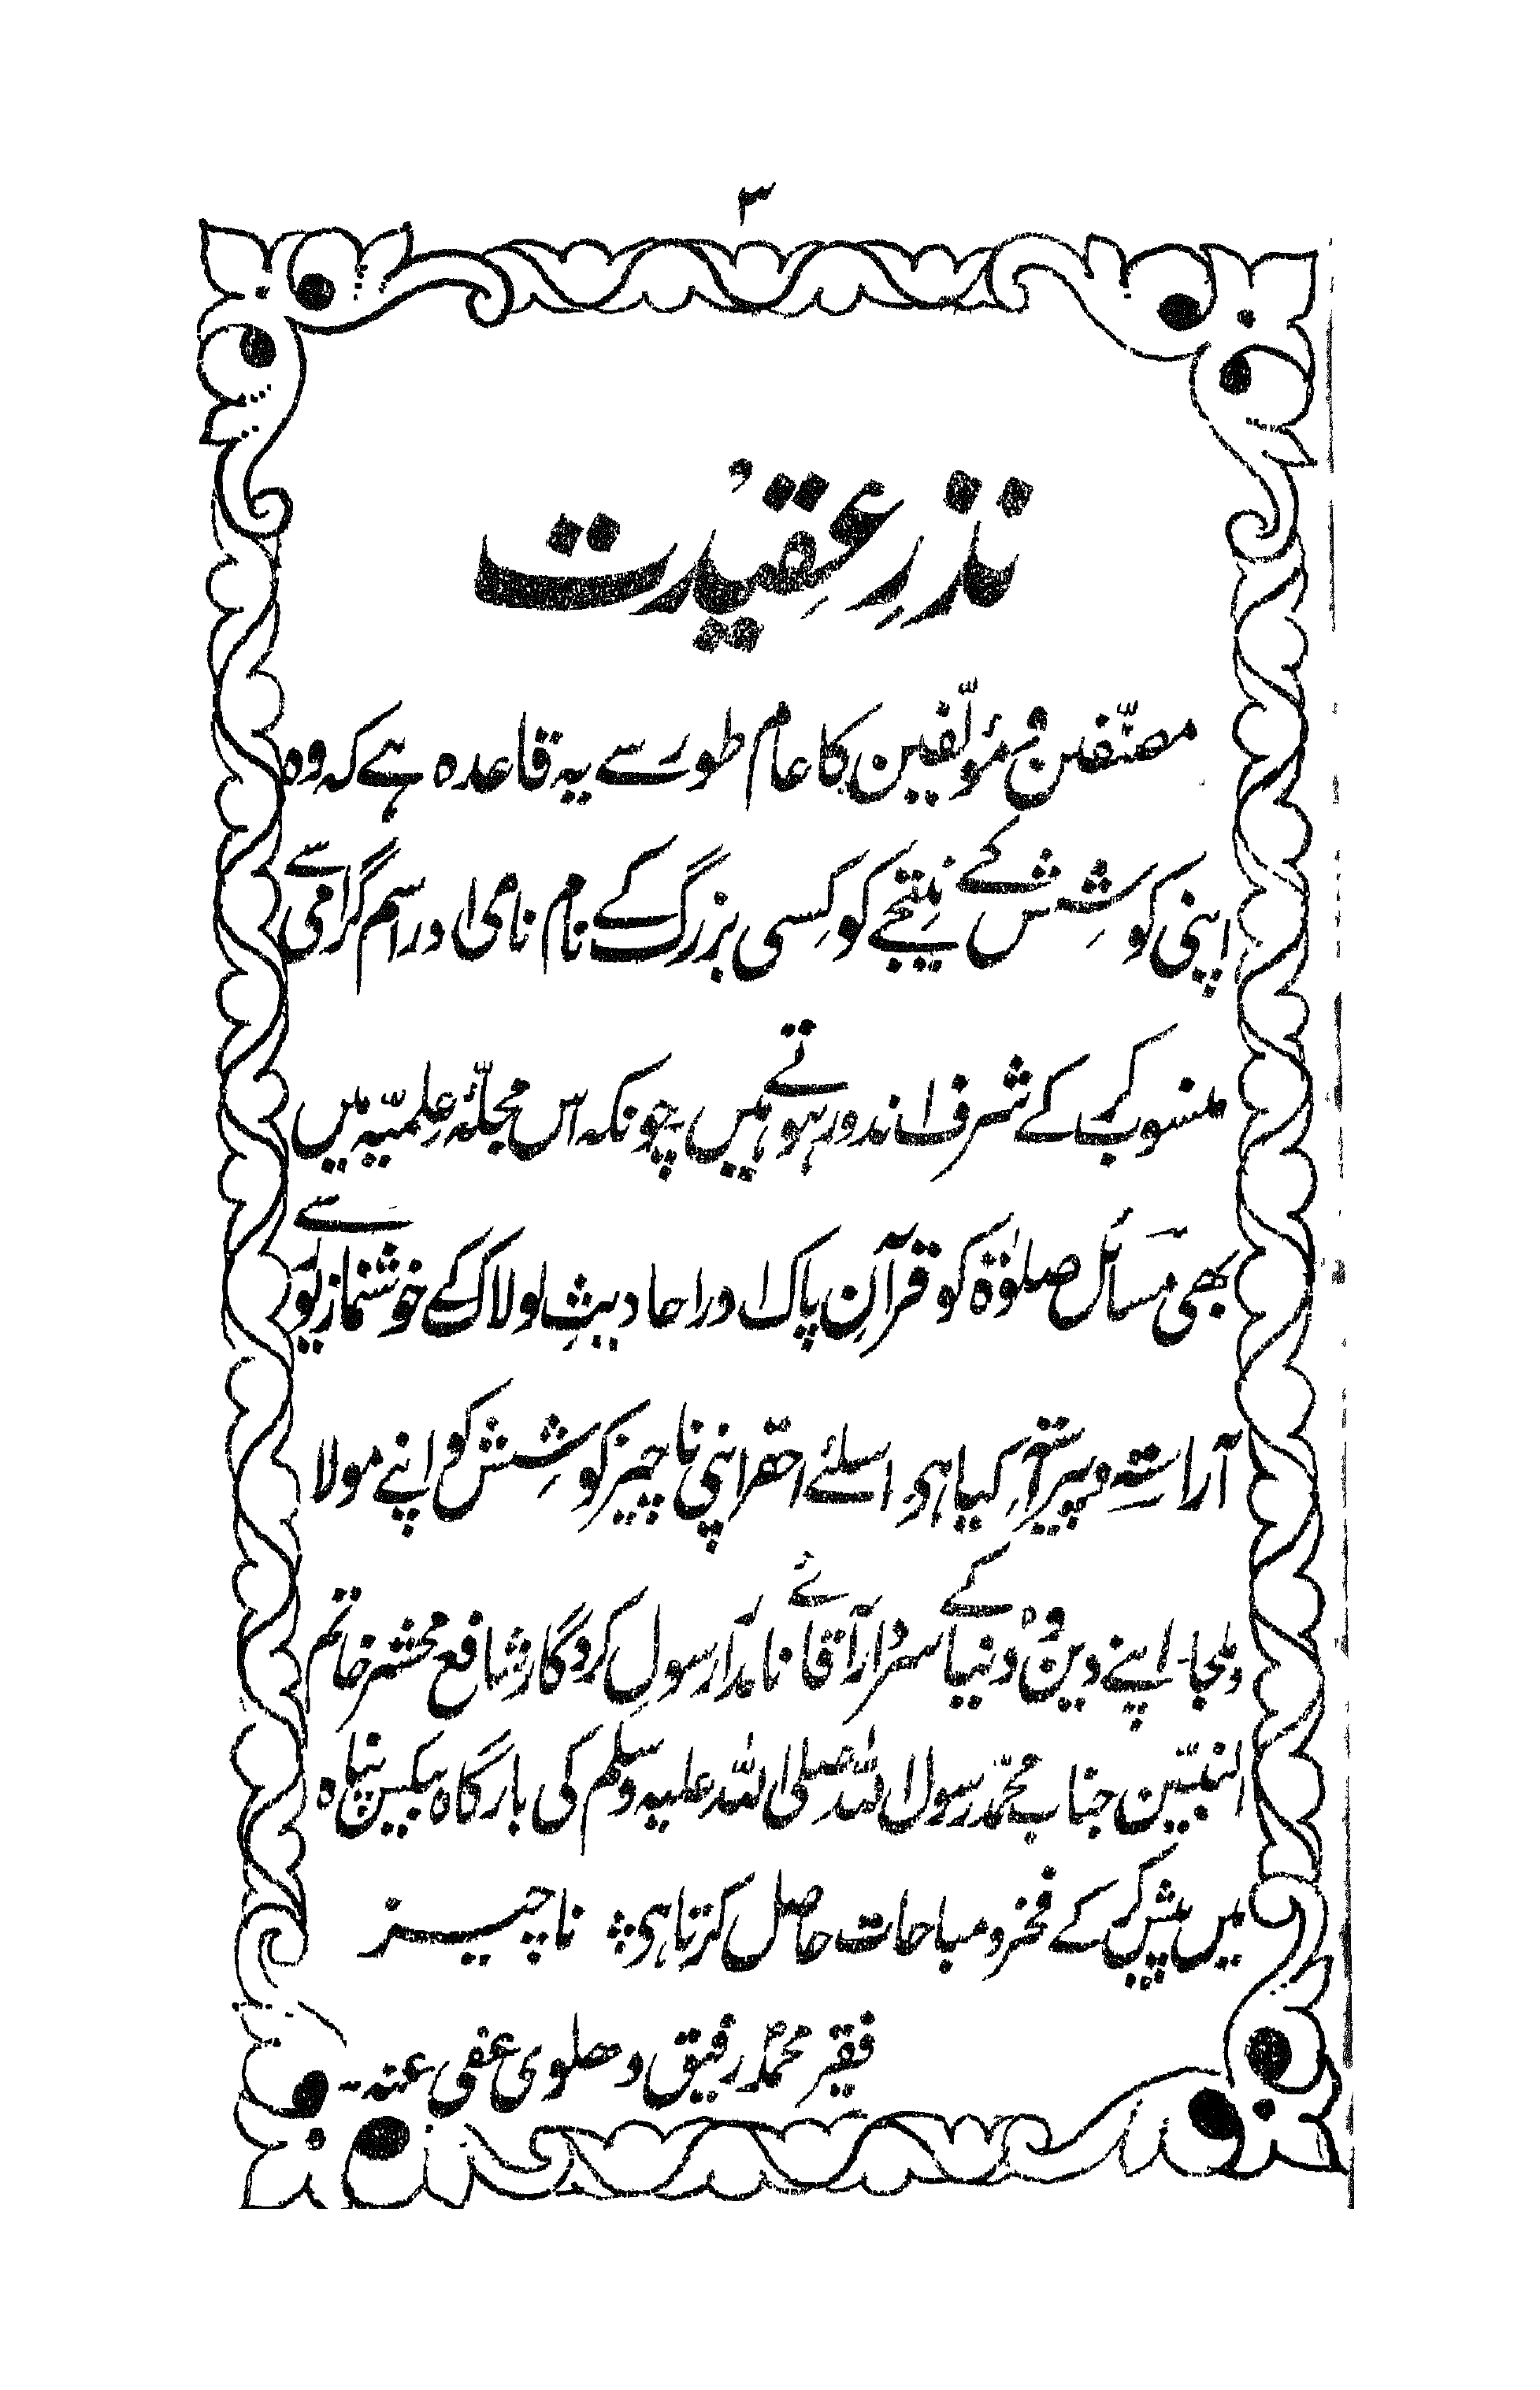 ۳
نذرِ عقیدت
مصنّفین و مؤلّفین کا عام طور سے یہ قاعدہ ہے کہ وہ
اپنی کوشِشش کے نتیجے کو کِسی بزرگ کے نام نامی اور اسم گرامی سے
منسوب کر کے شرف اندوز ہوتے ہیں چونکہ اس مجلّۂ علمیّہ میں
بھی مسائل صلوٰۃ کو قرآنِ پاک اور احادیثِ لولاک کے خوشنما زیور سے
آراستہ و پیراستہ کیا ہی اسلئے احقر اپنی ناچیز کوشِشش کو اپنے مولا
و ملجا۔ اپنے دین و دُنیا کے سردار آقائے نامدار رسولِ کردگار شافع محشر خاتم
النبیّین جناب محمّد رسول اللہ صلی اللہ علیہ وسلم کی بارگاہ بیکس پناہ
میں پیش کر کے فخر و مباحات حاصل کرتا ہی ؞ ناچیز
فقیر محمدؐ رفیق دھلوی عفی عنہ۔